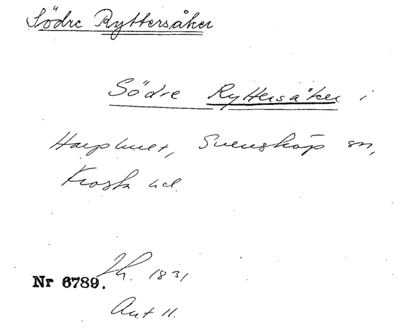 Södre Ryttersåker
Södre Ryttersåker i
Harphult, Svensköp sn,
Frosta hd.
Nr 6789. Sk. 1831
Akt 11.